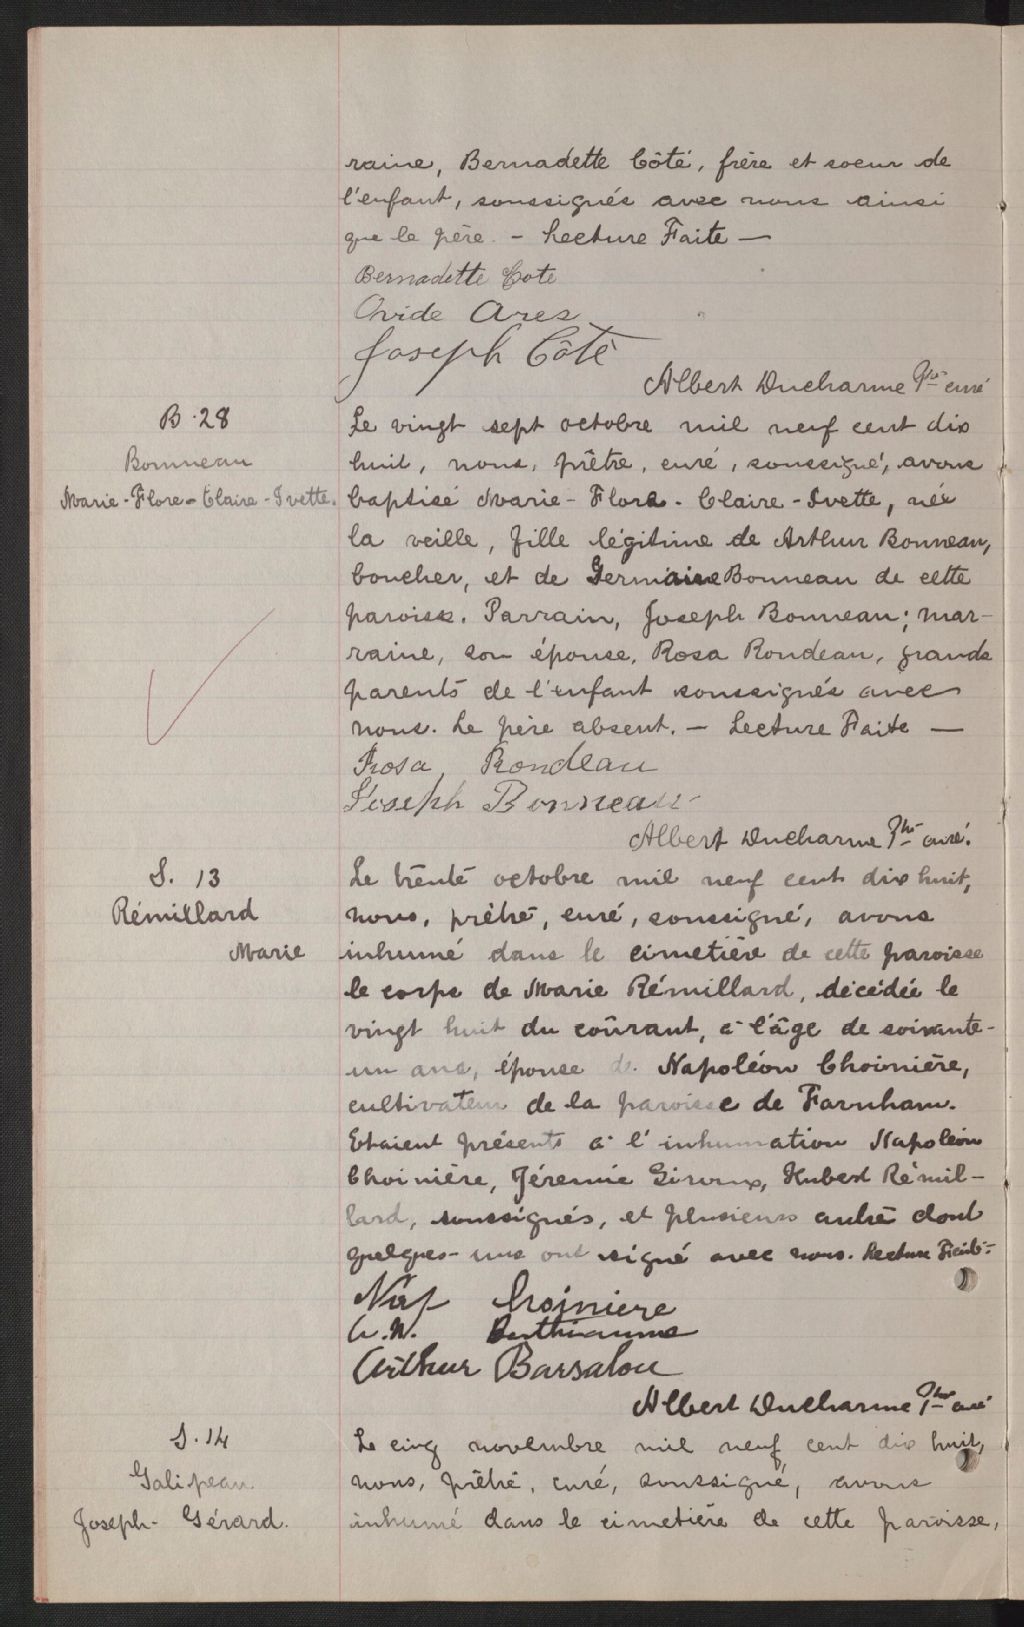 raine, Bernadette Côté, frère et soeur de
l'enfant, soussignés avec nous ainsi
que le père. - Lecture Faite -
Bernadette Cote
Ovide Ares
Joseph Côté
Albert Ducharme Ptre curé
B. 28
Bonneau
Marie-Flore-Claire-Ivette.
Le vingt sept octobre mil neuf cent dix
huit, nous, prêtre, curé, soussigné, avons
baptisé Marie-Flora-Claire-Ivette, née
la veille, fille légitime de Arthur Bonneau,
boucher, et de Germaine Bonneau de cette
paroisse. Parrain, Joseph Bonneau; mar-
raine, son épouse, Rosa Rondeau, grands
parents de l'enfant soussignés avec
nous. Le père absent. - Lecture Faite -
Rosa Rondeau
Joseph Bonneau
Albert Ducharme Ptre curé.
S. 13
Rémillard
Marie
Le trente octobre mil neuf cent dix huit,
nous, prêtre, curé, soussigné, avons
inhumé dans le cimetière de cette paroisse
le corps de Marie Rémillard, décédée le
vingt huit du courant, à l'âge de soixante-
un ans, épouse de Napoléon Choinière,
cultivateur de la paroisse de Farnham.
Etaient présents à l'inhumation Napoléon
Choinière, Jérémie Giroux, Hubert Rémil-
lard, soussignés, et plusieurs autre dont
quelques-uns ont signé avec nous. Lecture Faite-
Nap Choiniere
A. N. Berthiaume
Arthur Barsalou
Albert Ducharme Ptre curé
S. 14
Galipeau
Joseph-Gérard.
Le cinq novembre mil neuf cent dix huit,
nous, prêtre, curé, soussigné, avons
inhumé dans le cimetière de cette paroisse,